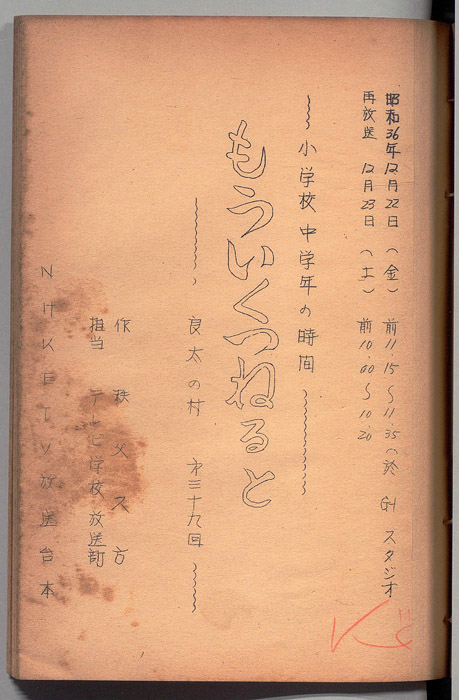 昭和36年12月22日（金）前11.15～11.35（於 GH スタジオ
再放送 12月23日（土）前10.00～10.20
～小学校中学年の時間～
もういくつねると
～良太の村 第三十九回～
作 秩父久方
担当 テレビ学校放送部
NHKETV放送台本